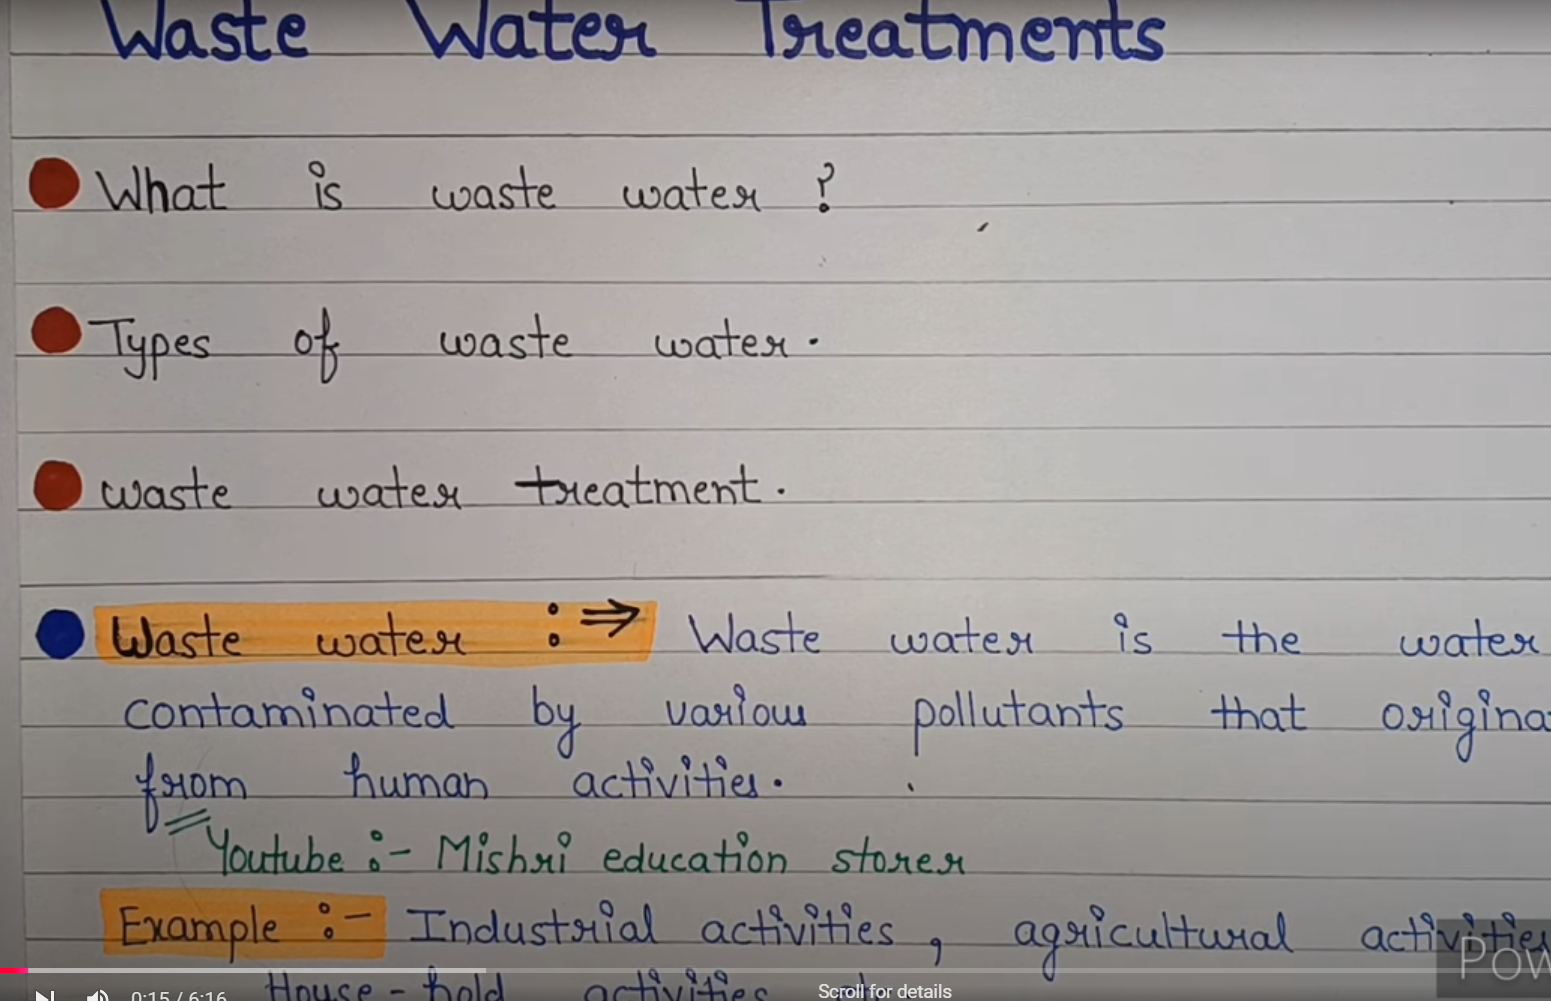 Waste Water Treatments
What is waste water ?
Types of waste water.
waste water treatment.
Waste water :⇒ Waste water is the water
contaminated by various pollutants that origina
from human activities.
Youtube :- Mishri education storer
Example :- Industrial activities, agricultural activities
House-hold activities
Pow
0:15 / 6:16
Scroll for details